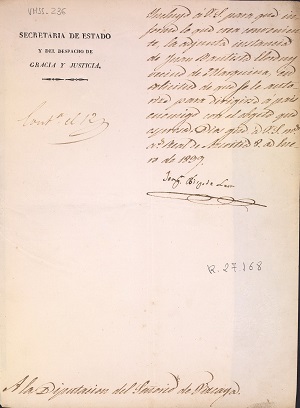 VMSS-236
SECRETARIA DE ESTADO
Y DEL DESPACHO DE
GRACIA Y JUSTICIA.
Incluyo á V.S. para que informe
lo que sea conveniente
la adjunta instancia
de Juan Bautista
vecino de Marquina, en
solicitud de que se le autorice
para dirigirse a pais
enemigo con el objeto que
expresa. Dios gue á V.S. ms
as. Real de 8 de Enero
de 1839.
R. 27168
A la Diputacion del Señorio de Vizcaya.